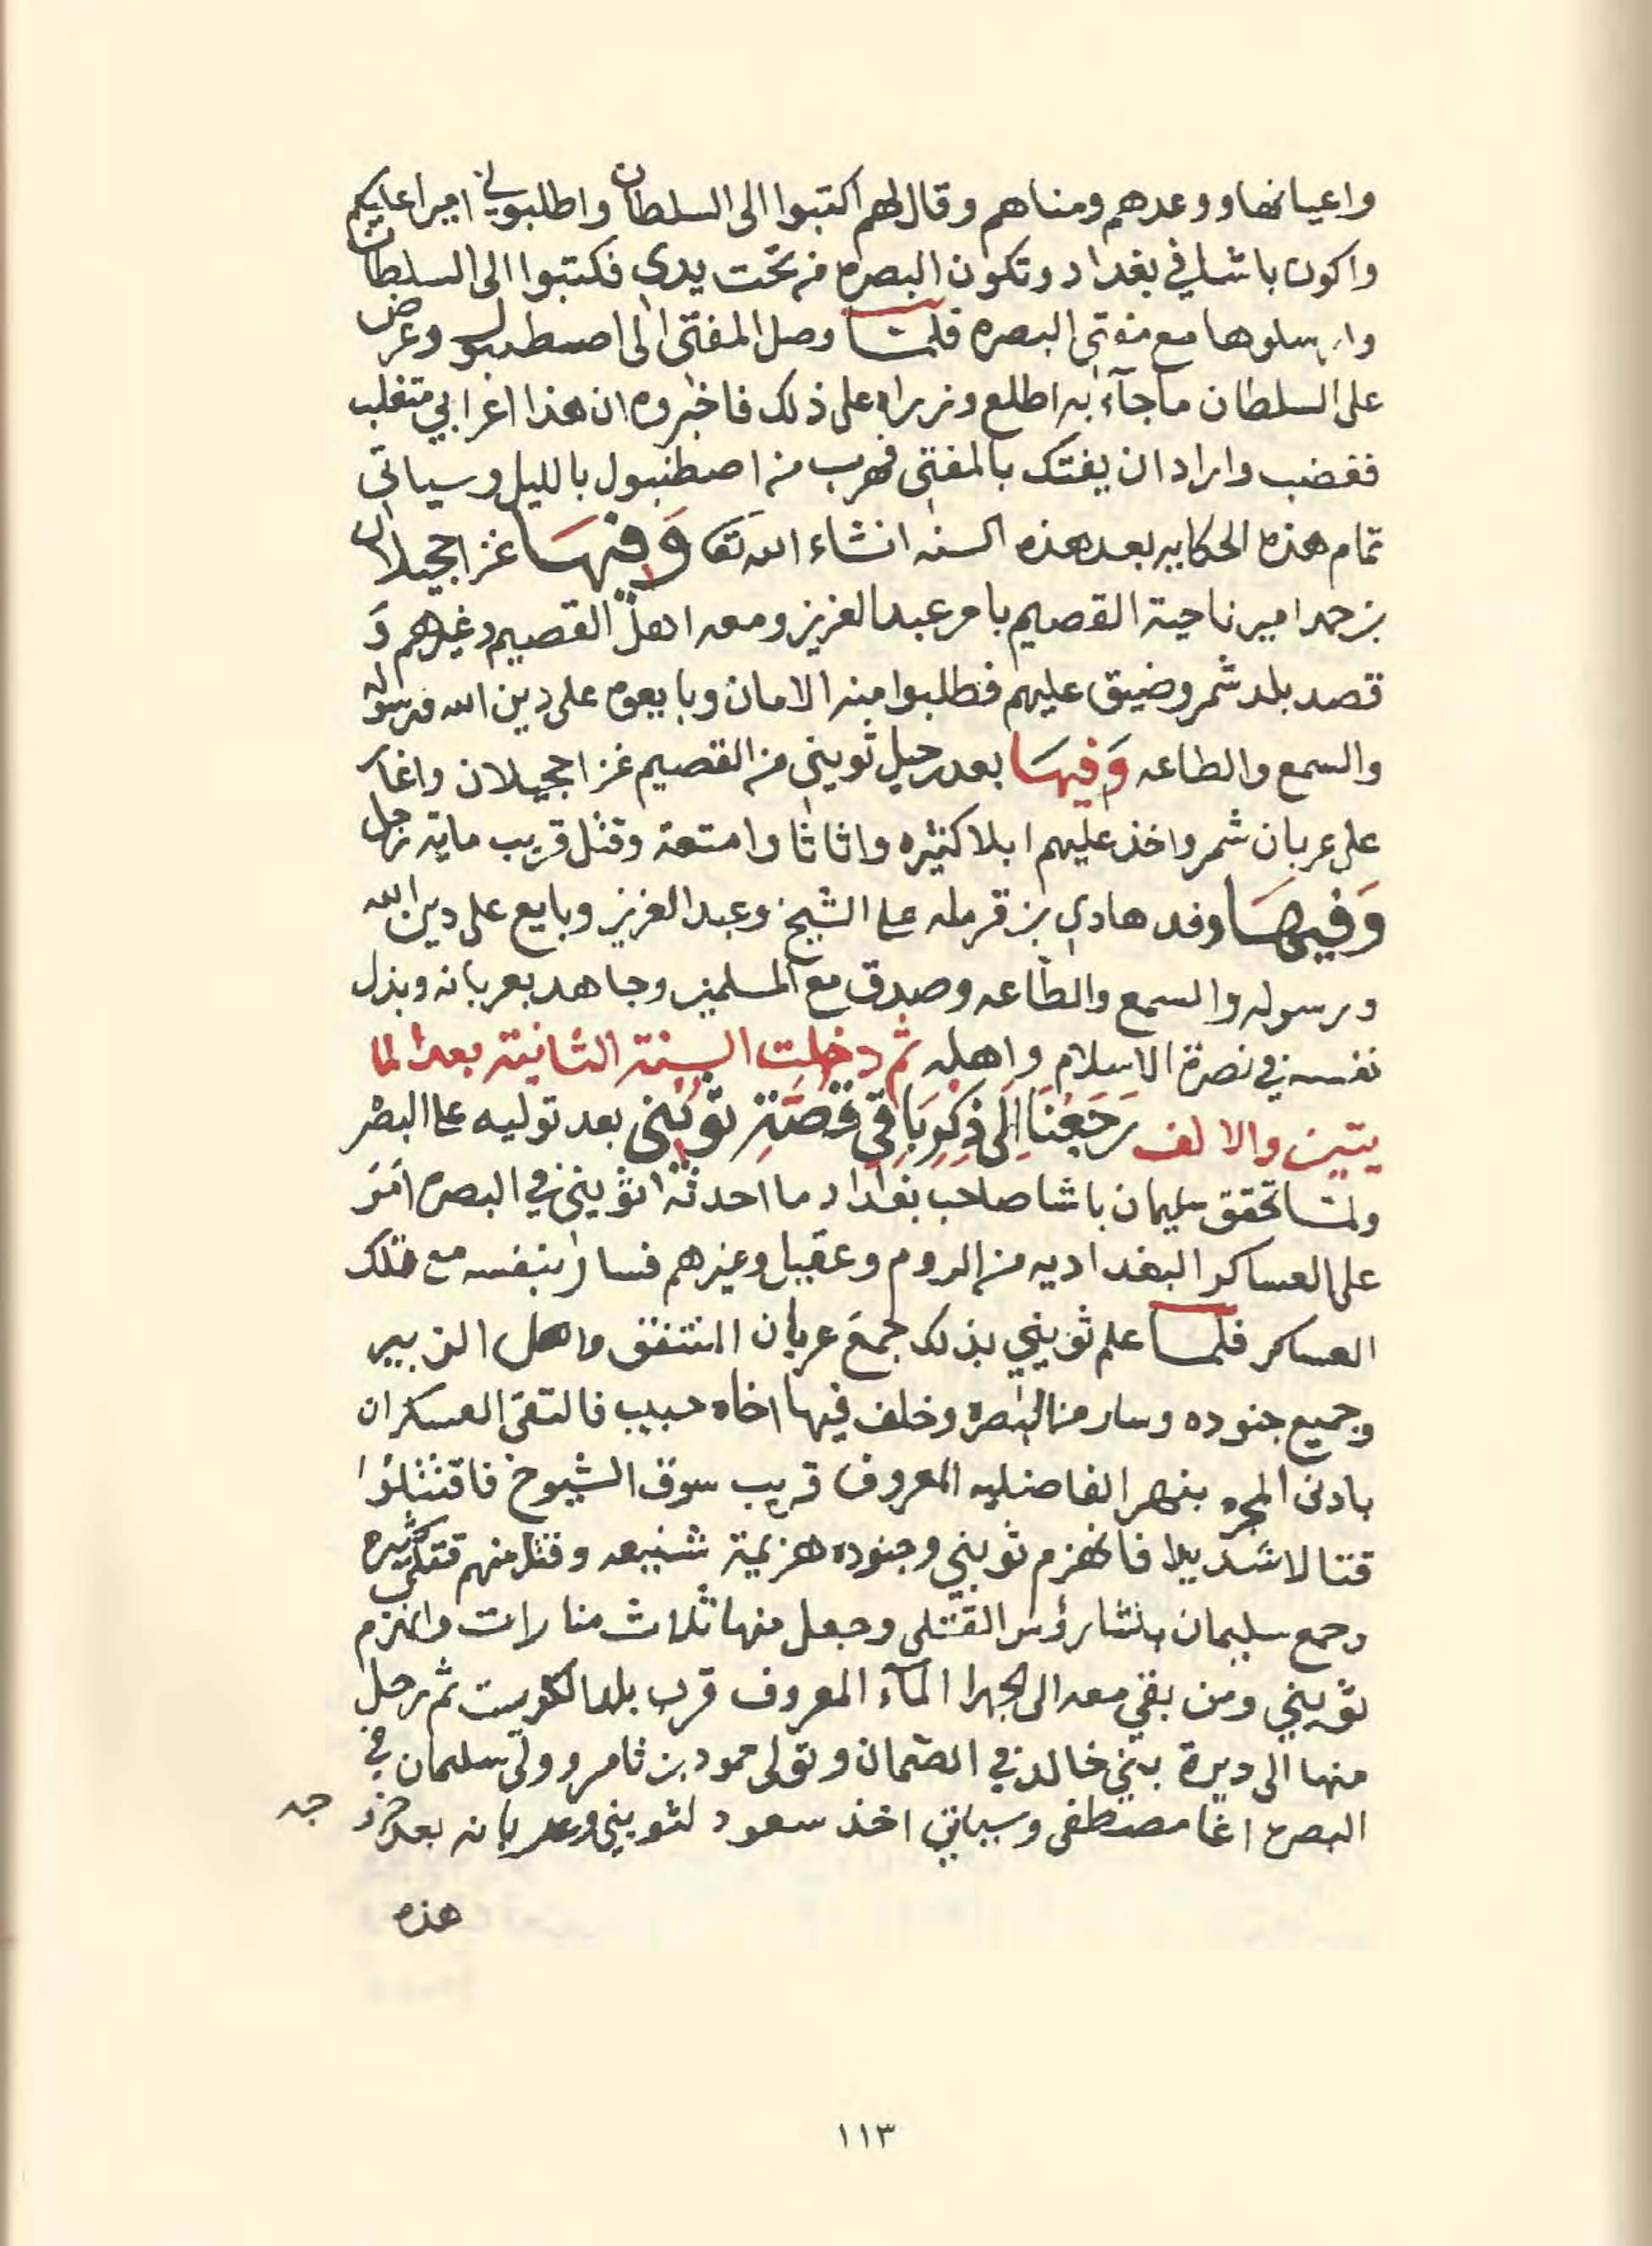 واعيانها ووعدهم ومناهم وقال لهم اكتبوا الى السلطان واطلبوني اميرا عليكم
واكون باشا في بغداد وتكون البصره من تحت يدي فكتبوا الى السلطان
وارسلوها مع مفتي البصره فلمــا وصل المفتي الى اصطنبول وعرض
على السلطان ما جآء به اطلع وزراه على ذلك فاخبروه ان هذا اعرابي متغلب
فغضب واراد ان يفتك بالمفتي فهرب من اصطنبول بالليل وسياتي
تمام هذه الحكايه بعد هذه السنه انشاء الله تعا وَفِيهَـا غزا حجيلان
بن حمد امير ناحية القصيم بامر عبدالعزيز ومعه اهل القصيم وغيرهم وَ
قصد بلد شمر وضيق عليهم فطلبوا منه الامان وبايعوه على دين الله ورسوله
والسمع والطاعه وَفيهَا بعد رحيل ثويني من القصيم غزا حجيلان واغار
على عربان شمر واخذ عليهم ابلا كثيره واثاثا وامتعة وقتل قريب ماية رجل
وَفيهَــا وفد هادي بن قرمله على الشيخ وعبدالعزيز وبايع على دين الله
ورسوله والسمع والطاعه وصدق مع المسلمين وجاهد بعربانه وبذل
نفسه في نصرة الاسلام واهله ثم دخلت السنة الثانية بعد الما
يتين والالف رَجَعْنَا اِلَى ذِكْرِ بَاقِي قِصَّةِ ثُوَيْني بعد توليه على البصر
ولمــا تحقق سليمان باشا صاحب بغداد ما احدثه ثويني في البصره امَرَ
على العساكر البغداديه من الروم وعقيل وغيرهم فسار بنفسه مع تلك
العساكر فلمــا علم ثويني بذلك جمعَ عربان المنتفق واهل الزبير
وجميع جنوده وسار من البصره وخلف فيها اخاه حبيب فالتقى العسكران
بادنى المجره بنهر الفاضليه المعروف قريب سوق الشيوخ فاقتتلوا
قتالا شديدا فانهزم ثويني وجنوده هزيمة شنيعه وقتل منهم قتلى كثيره
وجمع سليمان باشا رؤس القتلى وجعل منها ثلاث منارات وانهزم
ثويني ومن بقي معه الى الجهرا المآء المعروف قرب بلد الكويت ثم رحل
منها الى ديرة بني خالد في الصمان وتولى حمود بن ثامر وولى سليمان في
البصره اغا مصطفى وسياتي اخذ سعود لثويني وعربانه بعد
هذه
١١٣